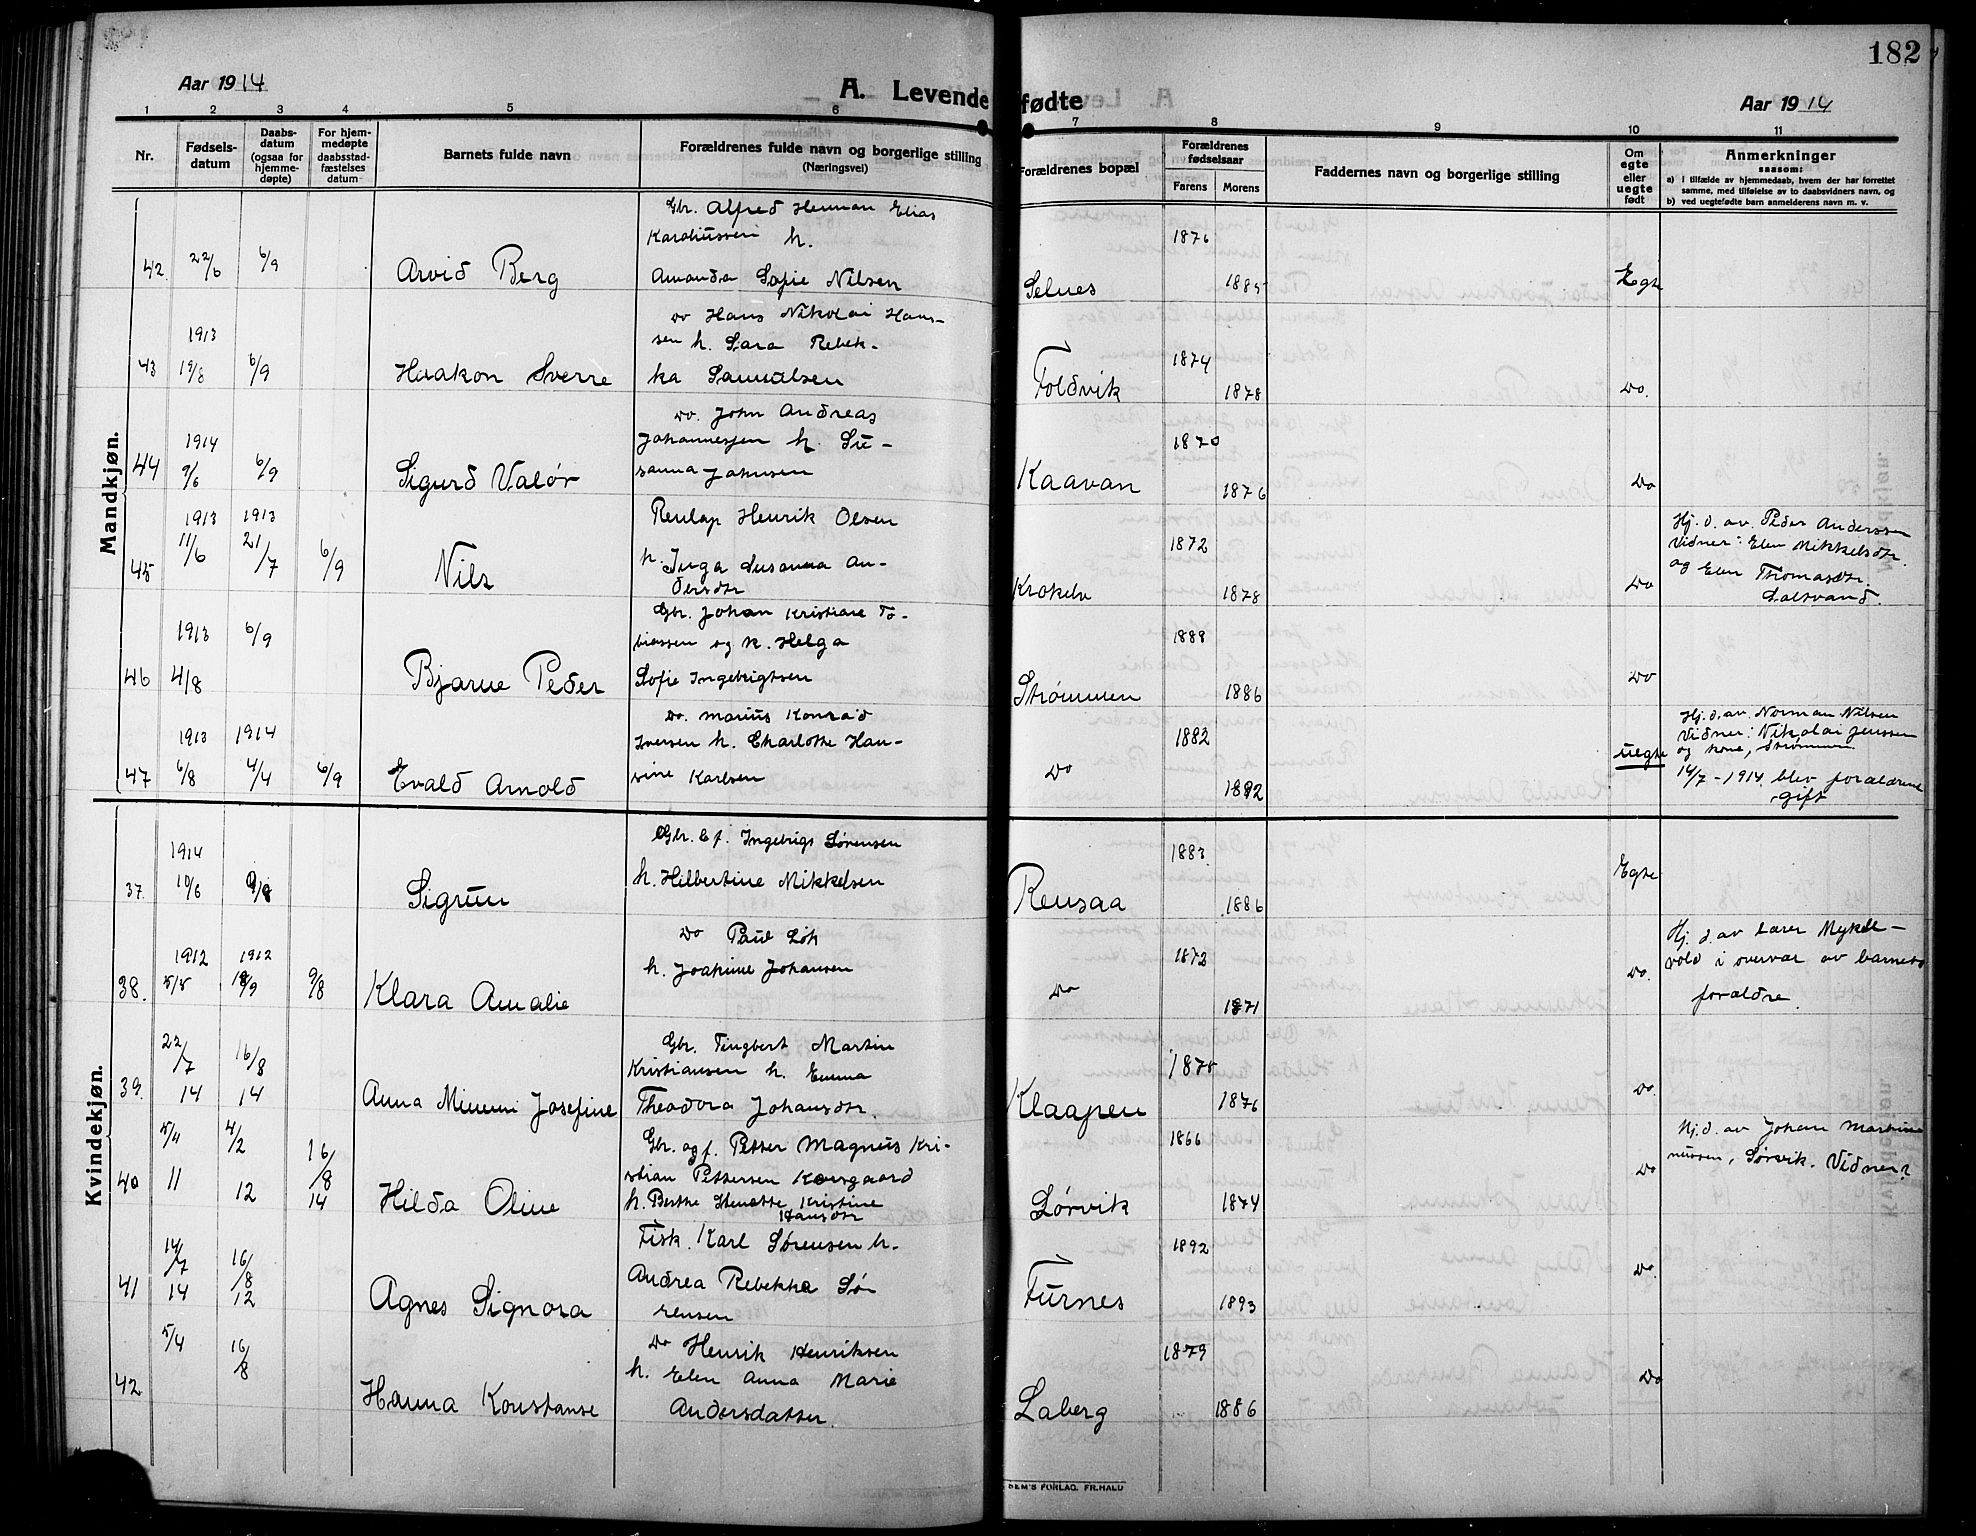 182
Aar 1914
A. Levendefødte
Aar 1914
1 2 3 4 5 6 7 8 9 10 11
Nr.
Fødsels-
datum
Daabs-
datum
(ogsaa for
hjemme-
døpte)
For hjem-
medøpte
daabsstad-
fæstelses
datum
Barnets fulde navn
Forældrenes fulde navn og borgerlige stilling
(Næringsvei)
Forældrenes bopæl
Forældrenes
fødselsaar
Farens Morens
Faddernes navn og borgerlige stilling
Om
egte
eller
uegte
født
Anmerkninger
saasom:
a) i tilfælde av hjemmedaab, hvem der har forrettet
samme, med tilføielse av to daabsvidners navn, og
b) ved uegtefødte barn anmelderens navn m. v.
Mandkjøn.
Gbr. Alfred Herman Elias
Karoliussen h. 1876
42. 22/6 6/9 Arvid Berg Amanda Sofie Nilsen Selnes 1885 Egte
Do Hans Nikolai Han-
1913 sen h. Sara Rebek- 1874
43 19/8 6/9 Haakon Sverre ka Samuelsen Foldvik 1878 Do.
Do. John Andreas
1914 Johannessen h. Su- 1870
44 9/6 6/9 Sigurd Valør sanna Johnsen Kaavan 1876 Do
1913 1913 Renlap Henrik Olsen 1872
45 11/6 21/7 6/9 Nils h. Inga Susanna An-
dersdtr Krokelv 1878 Do
Hj. d. av Peder Anderssen
Vidner: Elen Mikkelsdtr.
og Elen Thomasdtr.
Salsvand.
Gbr. Johan Kristian To-
1913 6/9 biassen og h. Helga 1888
46 4/8 Bjarne Peder Sofie Ingebrigtsen Strømmen 1886 Do
Do. Marius Konrad
1913 1914 Iversen h. Charlotte Han- 1882
47 6/8 4/4 6/9 Evald Arnold sine Karlsen Do 1892 uegte
Hj. d. av. Norman Nilsen
Vidner: Nikolai Jenssen
og kone, Strømmen
14/7 - 1914 blev forældrene
gift
Kvindekjøn.
1914 Gbr. & f. Ingebrigt Sørensen 1883
37. 10/6 9/8 Sigrun h. Hilbertine Mikkelsen Rensaa 1886 Egte
Do Paul Løk
1912 1912 h. Joakime Johansen 1872
38. 5/5 18/9 9/8 Klara Amalie Do 1871 Do.
Hj. d. av Lærer Mykle-
vold i overvær av barnets
forældre.
22/7 16/8 Gbr. Tingbert Martin
Kristiansen h. Emma 1875
39. 14 14 Anna Minmi Josefine Theodora Johansdtr. Klaapen 1876 Do.
5/4 4/2 Gbr. og f. Petter Magnus Kri- 1866
40 11 12 16/8 14 Hilda Oline stian Pettersen Korsgaard
h. Berthe Henrette Kristine
Hansdtr Sørvik 1874 Do
Hj. d. av Johan Martine
niussen, Sørvik. Vidner?
14/7 16/8 Fisk. Karl Sørensen h. 1892
41 14 12 Agnes Signora Andrea Rebekka Sø-
rensen Furnes 1893 Do.
5/4 16/8 Do Henrik Henriksen 1879
h. Elen Anna Marie
42 Hanna Konstanse Andersdatter. Laberg 1886 Do
SEM'S FORLAG. FR.HALD